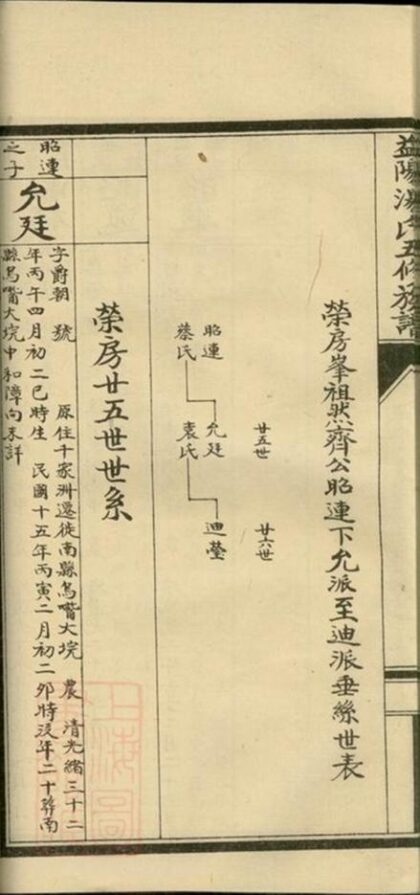 益陽湯氏五修族譜
榮房峯祖然齊公昭連下允派至迪派垂絲世表
廿五世
廿六世
昭連
蔡氏
允廷
袁氏
迪瑩
榮房廿五世世系
昭連
之子
允廷
字爵朝 號 原住千家洲遷徙南縣烏嘴大垸 農 清光緒三十二
年丙午四月初二巳時生 民國十五年丙寅二月初二卯時沒年二十葬南
縣烏嘴大垸中和障向未詳
上海圖